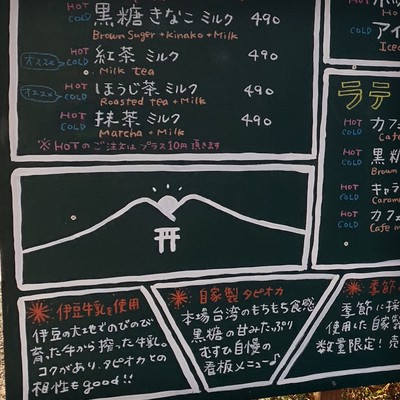 HOT
COLD
黒糖きなこミルク 490
Brown Suger + kinako + Milk
オススメ
HOT
COLD
紅茶 ミルク 490
Milk tea
オススメ
HOT
COLD
ほうじ茶 ミルク 490
Roasted tea + Milk
HOT
COLD
抹茶 ミルク 490
Marcha + Milk
※HOTのご注文はプラス10円頂きます
HOT
COLD
アイ
Iced
ラテ
HOT
COLD
カフ
Cafe
HOT
COLD
黒糖
Brown
HOT
キャラ
Caram
HOT
COLD
カフェ
Cafe m
伊豆牛乳を使用
伊豆の大地でのびのび
育った牛から搾った牛乳。
コクがあり、タピオカとの
相性もgood!!
自家製タピオカ
本場台湾のもちもち食感
黒糖の甘みたっぷり
むすひ自慢の
看板メニュー♪
季節
季節に採
使用した自家製
数量限定!売